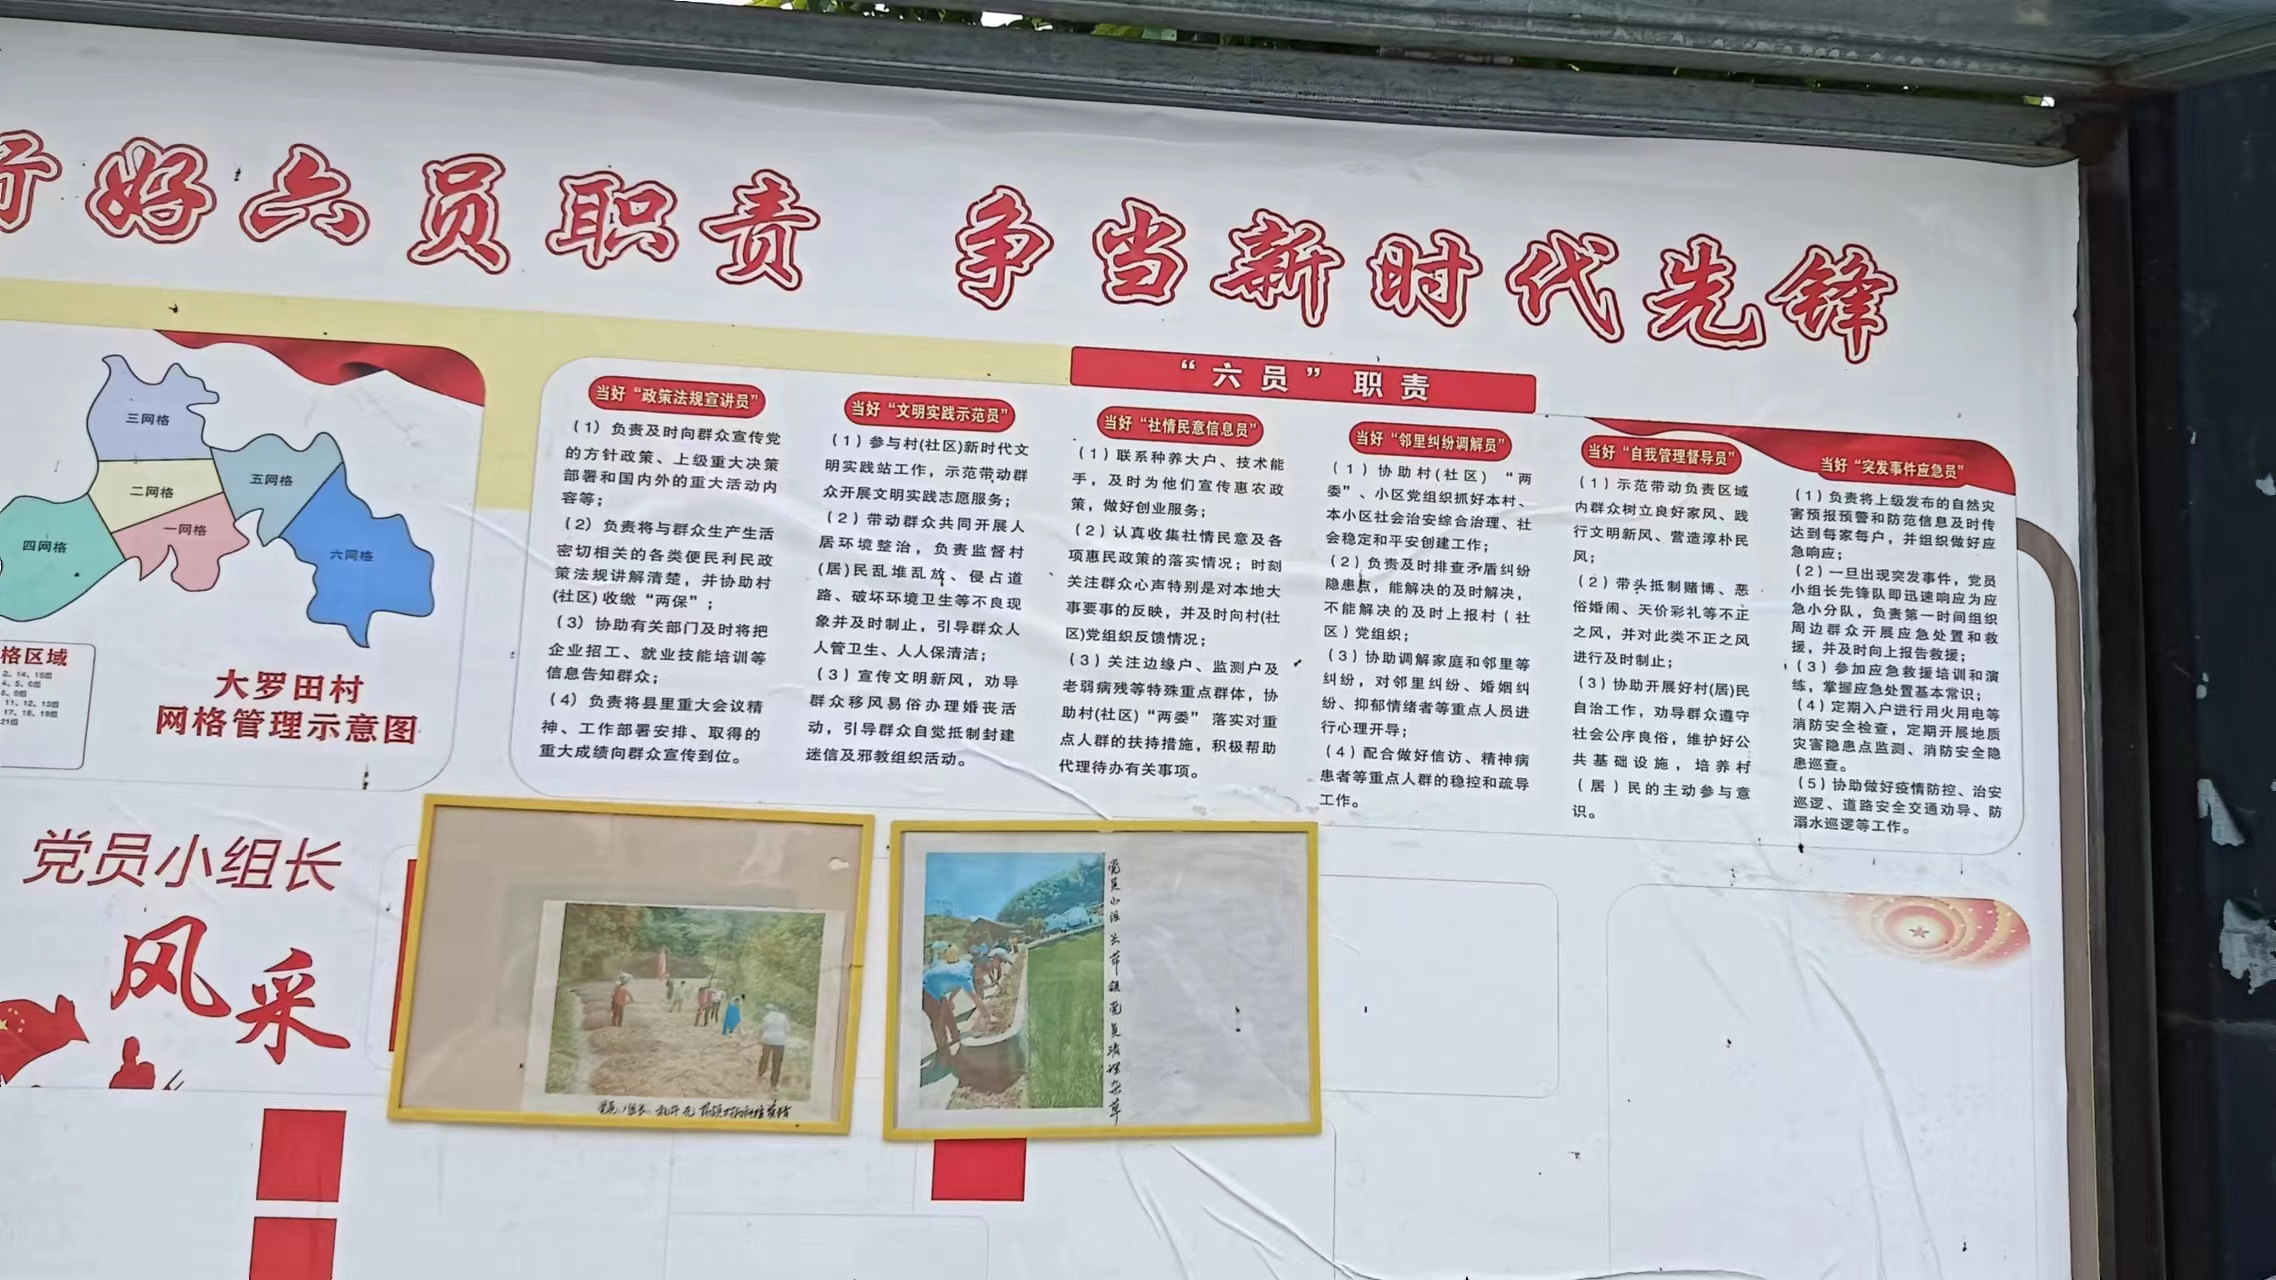 好六员职责 争当新时代先锋
三网格
二网格
一网格
五网格
四网格
六网格
格区域
2、14、15组
4、5、6组
8、9组
11、12、13组
17、18、19组
21组
大罗田村
网格管理示意图
“六员”职责
当好“政策法规宣讲员”
（1）负责及时向群众宣传党
的方针政策、上级重大决策
部署和国内外的重大活动内
容等；
（2）负责将与群众生产生活
密切相关的各类便民利民政
策法规讲解清楚，并协助村
(社区)收缴“两保”；
（3）协助有关部门及时将把
企业招工、就业技能培训等
信息告知群众；
（4）负责将县里重大会议精
神、工作部署安排、取得的
重大成绩向群众宣传到位。
当好“文明实践示范员”
（1）参与村(社区)新时代文
明实践站工作，示范带动群
众开展文明实践志愿服务；
（2）带动群众共同开展人
居环境整治，负责监督村
(居)民乱堆乱放、侵占道
路、破坏环境卫生等不良现
象并及时制止，引导群众人
人管卫生、人人保清洁；
（3）宣传文明新风，劝导
群众移风易俗办理婚丧活
动，引导群众自觉抵制封建
迷信及邪教组织活动。
当好“社情民意信息员”
（1）联系种养大户、技术能
手，及时为他们宣传惠农政
策，做好创业服务；
（2）认真收集社情民意及各
项惠民政策的落实情况；时刻
关注群众心声特别是对本地大
事要事的反映，并及时向村(社
区)党组织反馈情况；
（3）关注边缘户、监测户及
老弱病残等特殊重点群体，协
助村(社区)“两委”落实对重
点人群的扶持措施，积极帮助
代理待办有关事项。
当好“邻里纠纷调解员”
（1）协助村(社区)“两
委”、小区党组织抓好本村、
本小区社会治安综合治理、社
会稳定和平安创建工作；
（2）负责及时排查矛盾纠纷
隐患点，能解决的及时解决，
不能解决的及时上报村（社
区）党组织；
（3）协助调解家庭和邻里等
纠纷，对邻里纠纷、婚姻纠
纷、抑郁情绪者等重点人员进
行心理开导；
（4）配合做好信访、精神病
患者等重点人群的稳控和疏导
工作。
当好“自我管理督导员”
（1）示范带动负责区域
内群众树立良好家风、践
行文明新风、营造淳朴民
风；
（2）带头抵制赌博、恶
俗婚闹、天价彩礼等不正
之风，并对此类不正之风
进行及时制止；
（3）协助开展好村(居)民
自治工作，劝导群众遵守
社会公序良俗，维护好公
共基础设施，培养村
（居）民的主动参与意
识。
当好“突发事件应急员”
（1）负责将上级发布的自然灾
害预报预警和防范信息及时传
达到每家每户，并组织做好应
急响应；
（2）一旦出现突发事件，党员
小组长先锋队即迅速响应为应
急小分队，负责第一时间组织
周边群众开展应急处置和救
援，并及时向上报告救援；
（3）参加应急救援培训和演
练，掌握应急处置基本常识；
（4）定期入户进行用火用电等
消防安全检查，定期开展地质
灾害隐患点监测、消防安全隐
患巡查。
（5）协助做好疫情防控、治安
巡逻、道路安全交通劝导、防
溺水巡逻等工作。
党员小组长
风采
党员小组长
党员小组长带领党员清理杂草